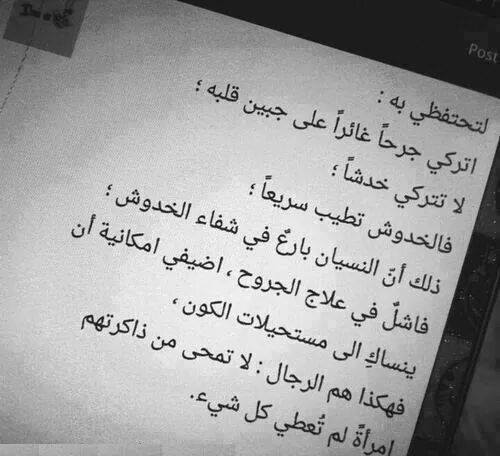 Post
لتحتفظي به :
اتركي جرحاً غائراً على جبين قلبه ؛
لا تتركي خدشاً ؛
فالخدوش تطيب سريعاً ؛
ذلك أنّ النسيان بارعٌ في شفاء الخدوش ؛
فاشلٌ في علاج الجروح ، اضيفي امكانية أن
ينساكِ الى مستحيلات الكون ،
فهكذا هم الرجال : لا تمحى من ذاكرتهم
امرأةً لم تُعطي كل شيء.